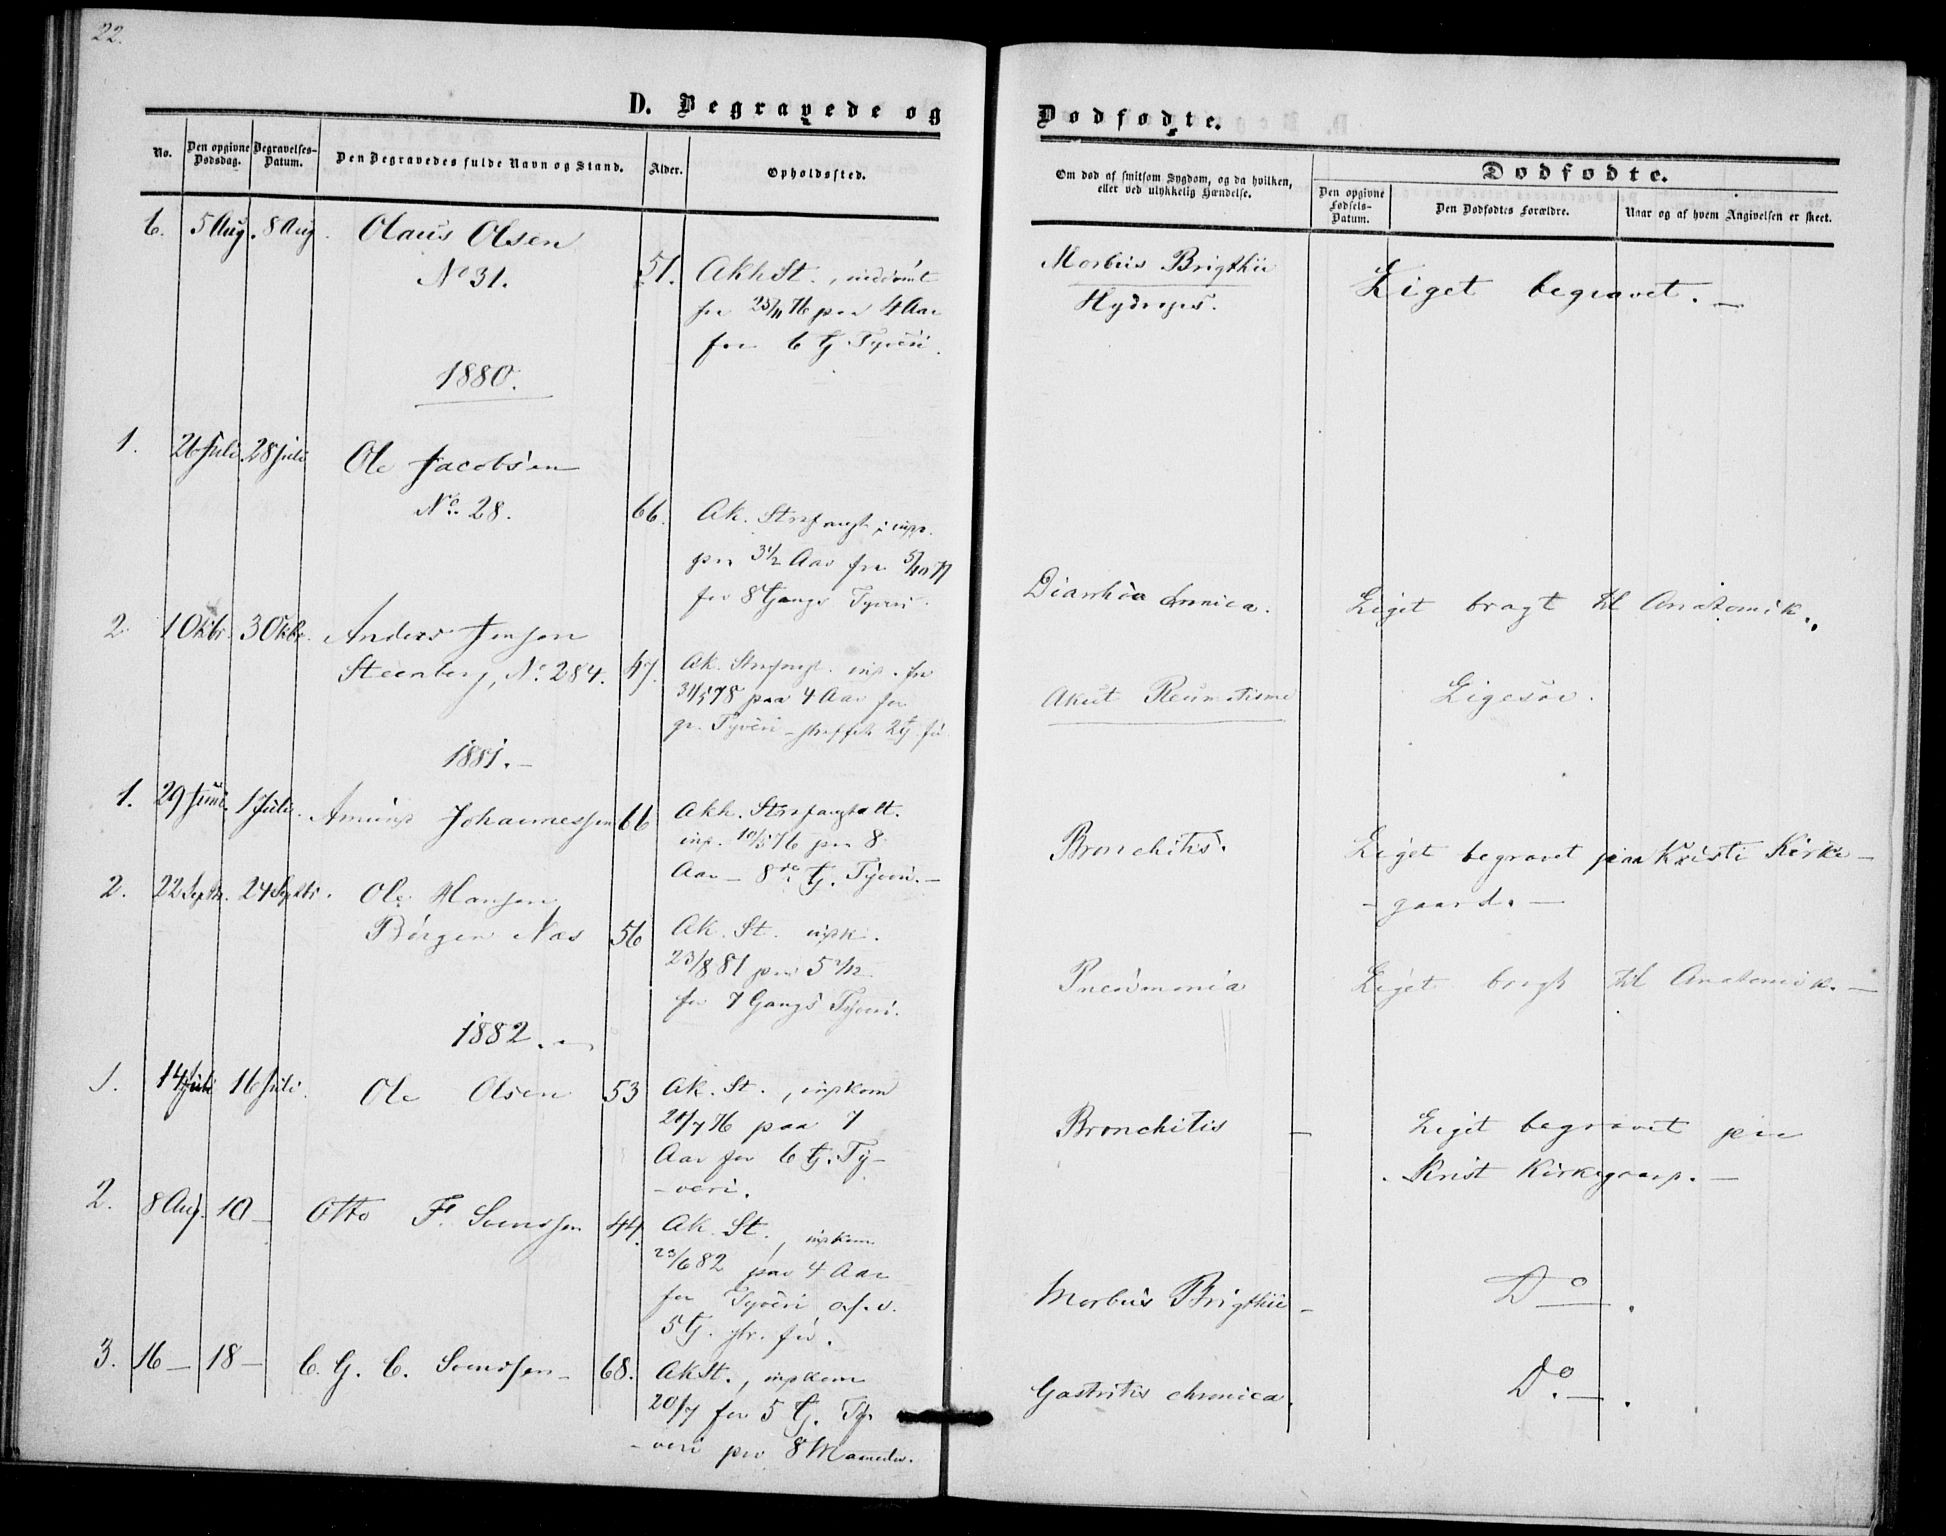 22.
D. Begravede og
Dødfødte.
No.
Den opgivne Dødsdag.
Begravelses-Datum.
Den Begravedes fulde Navn og Stand.
Alder.
Opholdssted.
Om død af smitsom Sygdom, og da hvilken,
eller ved ulykkelig Hændelse.
Dødfødte.
Den opgivne Fødsels-Datum.
Den Dødfødtes Forældre.
Naar og af hvem Angivelsen er skeet.
6. 5 Aug. 8 Aug. Olaus Olsen
No 31. 51. AkhSt.,
25/11 76 paa 4 Aar
for 6 G. Tyveri.
Morbus Brigthii
Hydrops.
Liget begravet. —
1880.
1. 26 Juli. 28 Juli Ole Jacobsen
No. 28. 66. Ak. Strafanst., inp.
paa 3 1/2 Aar fra
for 8 Gangs Tyveri.
Diarrhöa chronica.
Liget bragt til Anatomik.
2. 1 Oktbr. 3 Oktbr. Anders Jensen
Steenberg, No. 284. 47. Ak. Strafanst. inp. fra
31/5 78 paa 4 Aar for
gr. Tyveri – straffet 2 G. før
Akut Reumatisme
Ligesaa.
1881. –
1. 29 Juni. 1 Juli. Amund Johannessen 66 Akh. Strafanstalt.
inp. 10/5 76 paa 8
Aar – 8de G. Tyveri. –
Bronchitis.
Liget begravet paa Kristi Kirke-
-gaard. —
2. 22 Septbr. 24 Septbr. Ole Hansen
Børgen Næs 56 Ak. St. inpk.
23/8 81 paa 5
for 7 Gangs Tyveri.
Pneumonia
Liget bragt til Anatomik. —
1882. –
1. 14 Juli 16 Juli. Ole Olsen 53 Ak. St., inpkom
/7 76 paa 7
Aar for 6 G. Ty-
-veri.
Bronchitis –
Liget begravet paa
Krist Kirkegaard. —
2. 8 Aug. 10 – Otto F. Svendsen 44. Ak. St., inpkom
23/6 82 paa 4 Aar
for Tyveri o.s.v.
5 G. str. før.
Morbus Brigthii –
Do.
3. 16 — 18 — C. G. C. Svendsen – 68. AkSt., inpkom
20/7 for 5 G. Ty-
-veri paa 8 Maaneder.
Gastritis chronica.
Do. —